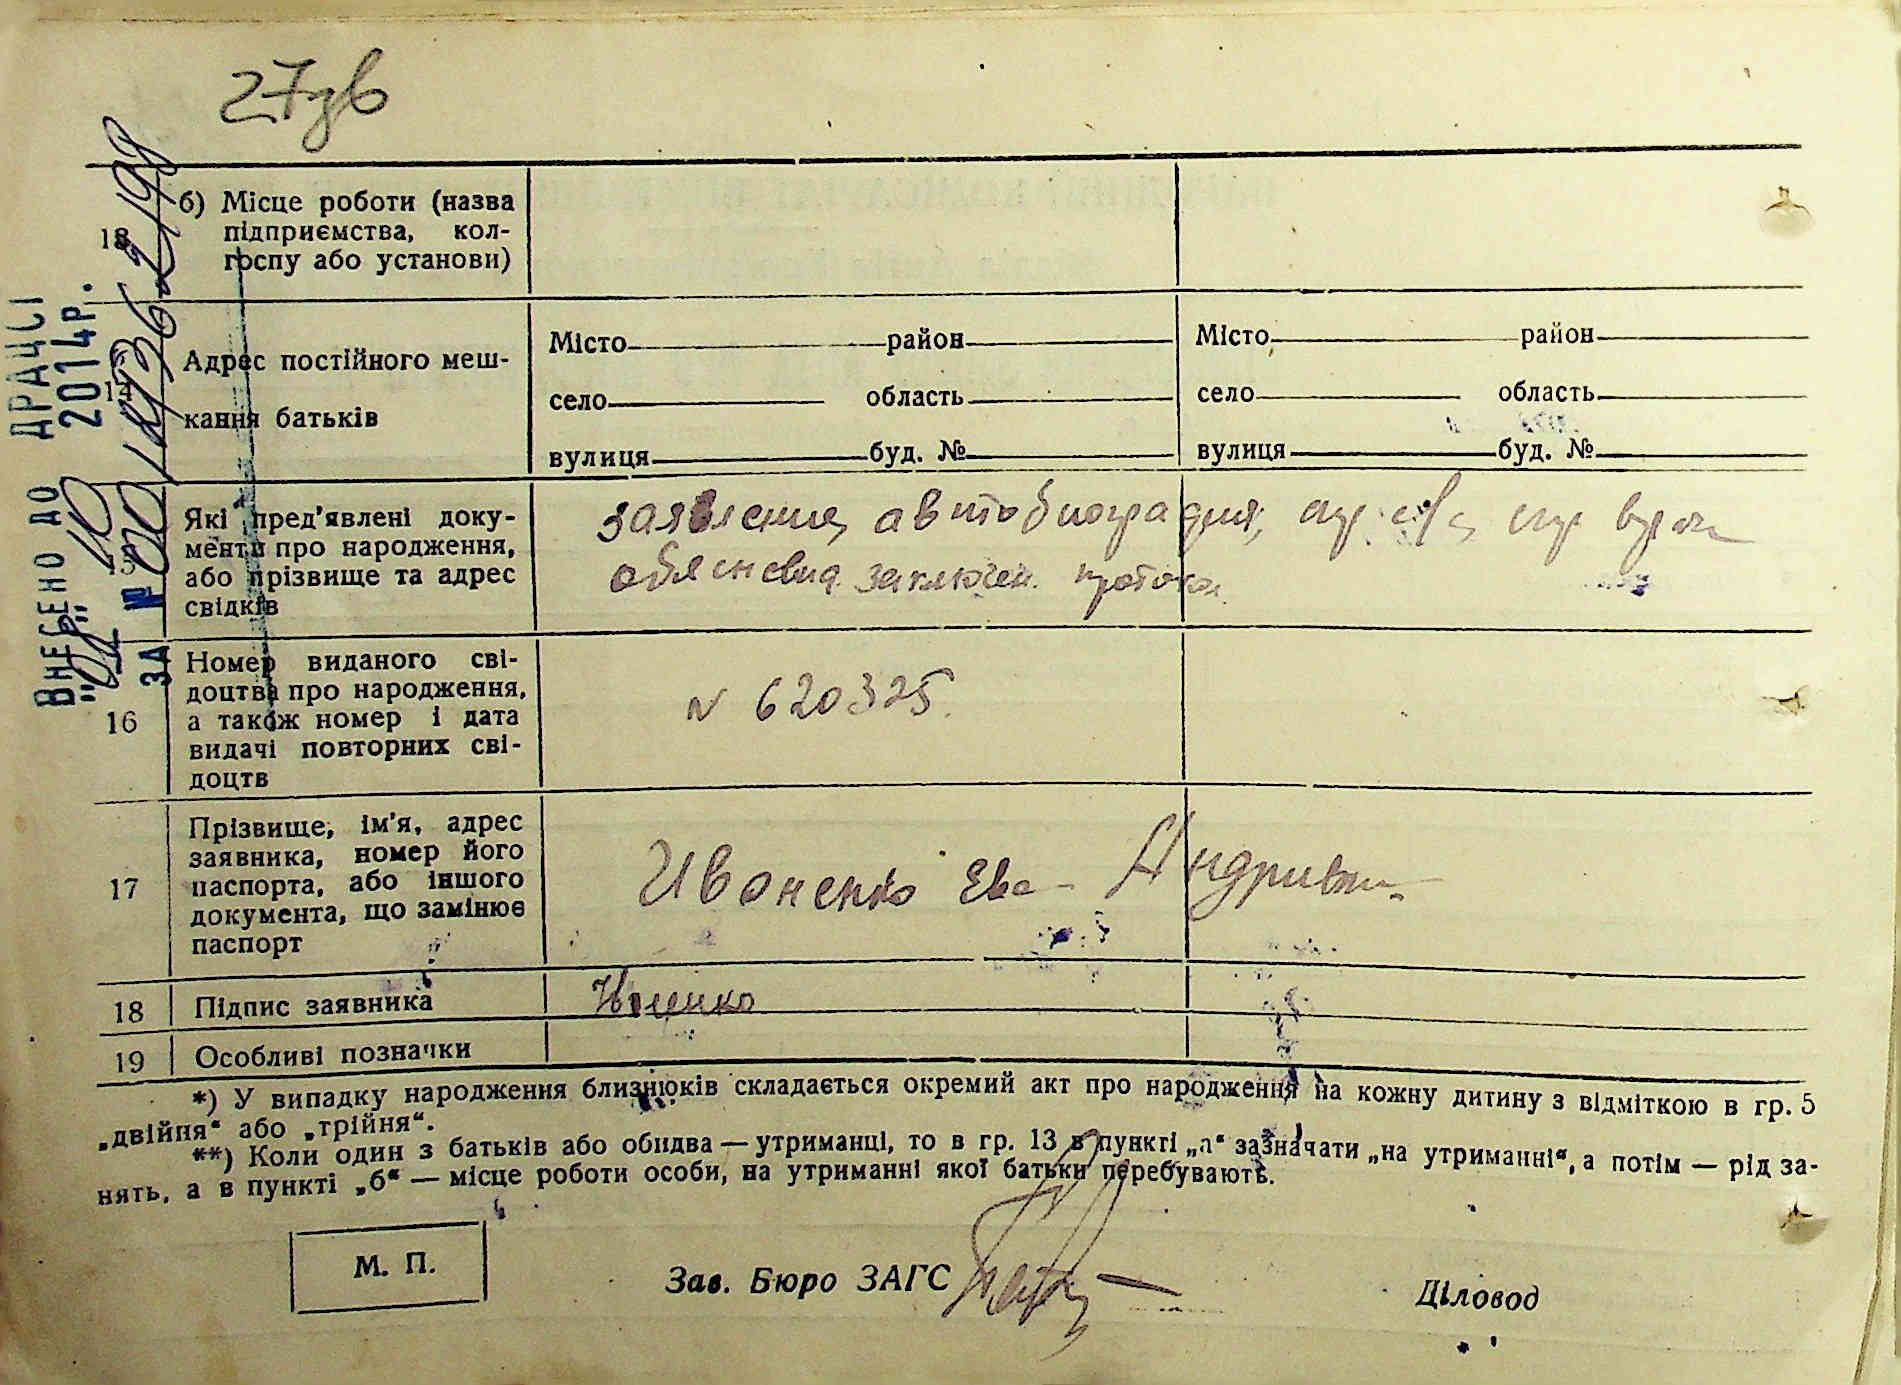 27зв
13
б) Місце роботи (назва
підприємства, кол-
госпу або установи)
14
Адрес постійного меш-
кання батьків
Місто район
село область
вулиця буд. №
Місто район
село область
вулиця буд. №
15
Які пред'явлені доку-
менти про народження,
або прізвище та адрес
свідків
заявление, автобиография,
заключен. проток
16
Номер виданого сві-
доцтва про народження,
а також номер і дата
видачі повторних сві-
доцтв
N 620325
17
Прізвище, ім'я, адрес
заявника, номер його
паспорта, або іншого
документа, що замінює
паспорт
Ивоненко Ева Андривн
18
Підпис заявника
19
Особливі позначки
*) У випадку народження близнюків складається окремий акт про народження на кожну дитину з відміткою в гр. 5
„двійня“ або „трійня“.
**) Коли один з батьків або обидва — утриманці, то в гр. 13 в пункті „а“ зазначати „на утриманні“, а потім — рід за-
нять, а в пункті „б“ — місце роботи особи, на утриманні якої батьки перебувають.
М. П.
Зав. Бюро ЗАГС
Діловод
ВНЕСЕНО ДО ДРАЦСГ
"01" 10 2014р.
ЗА №